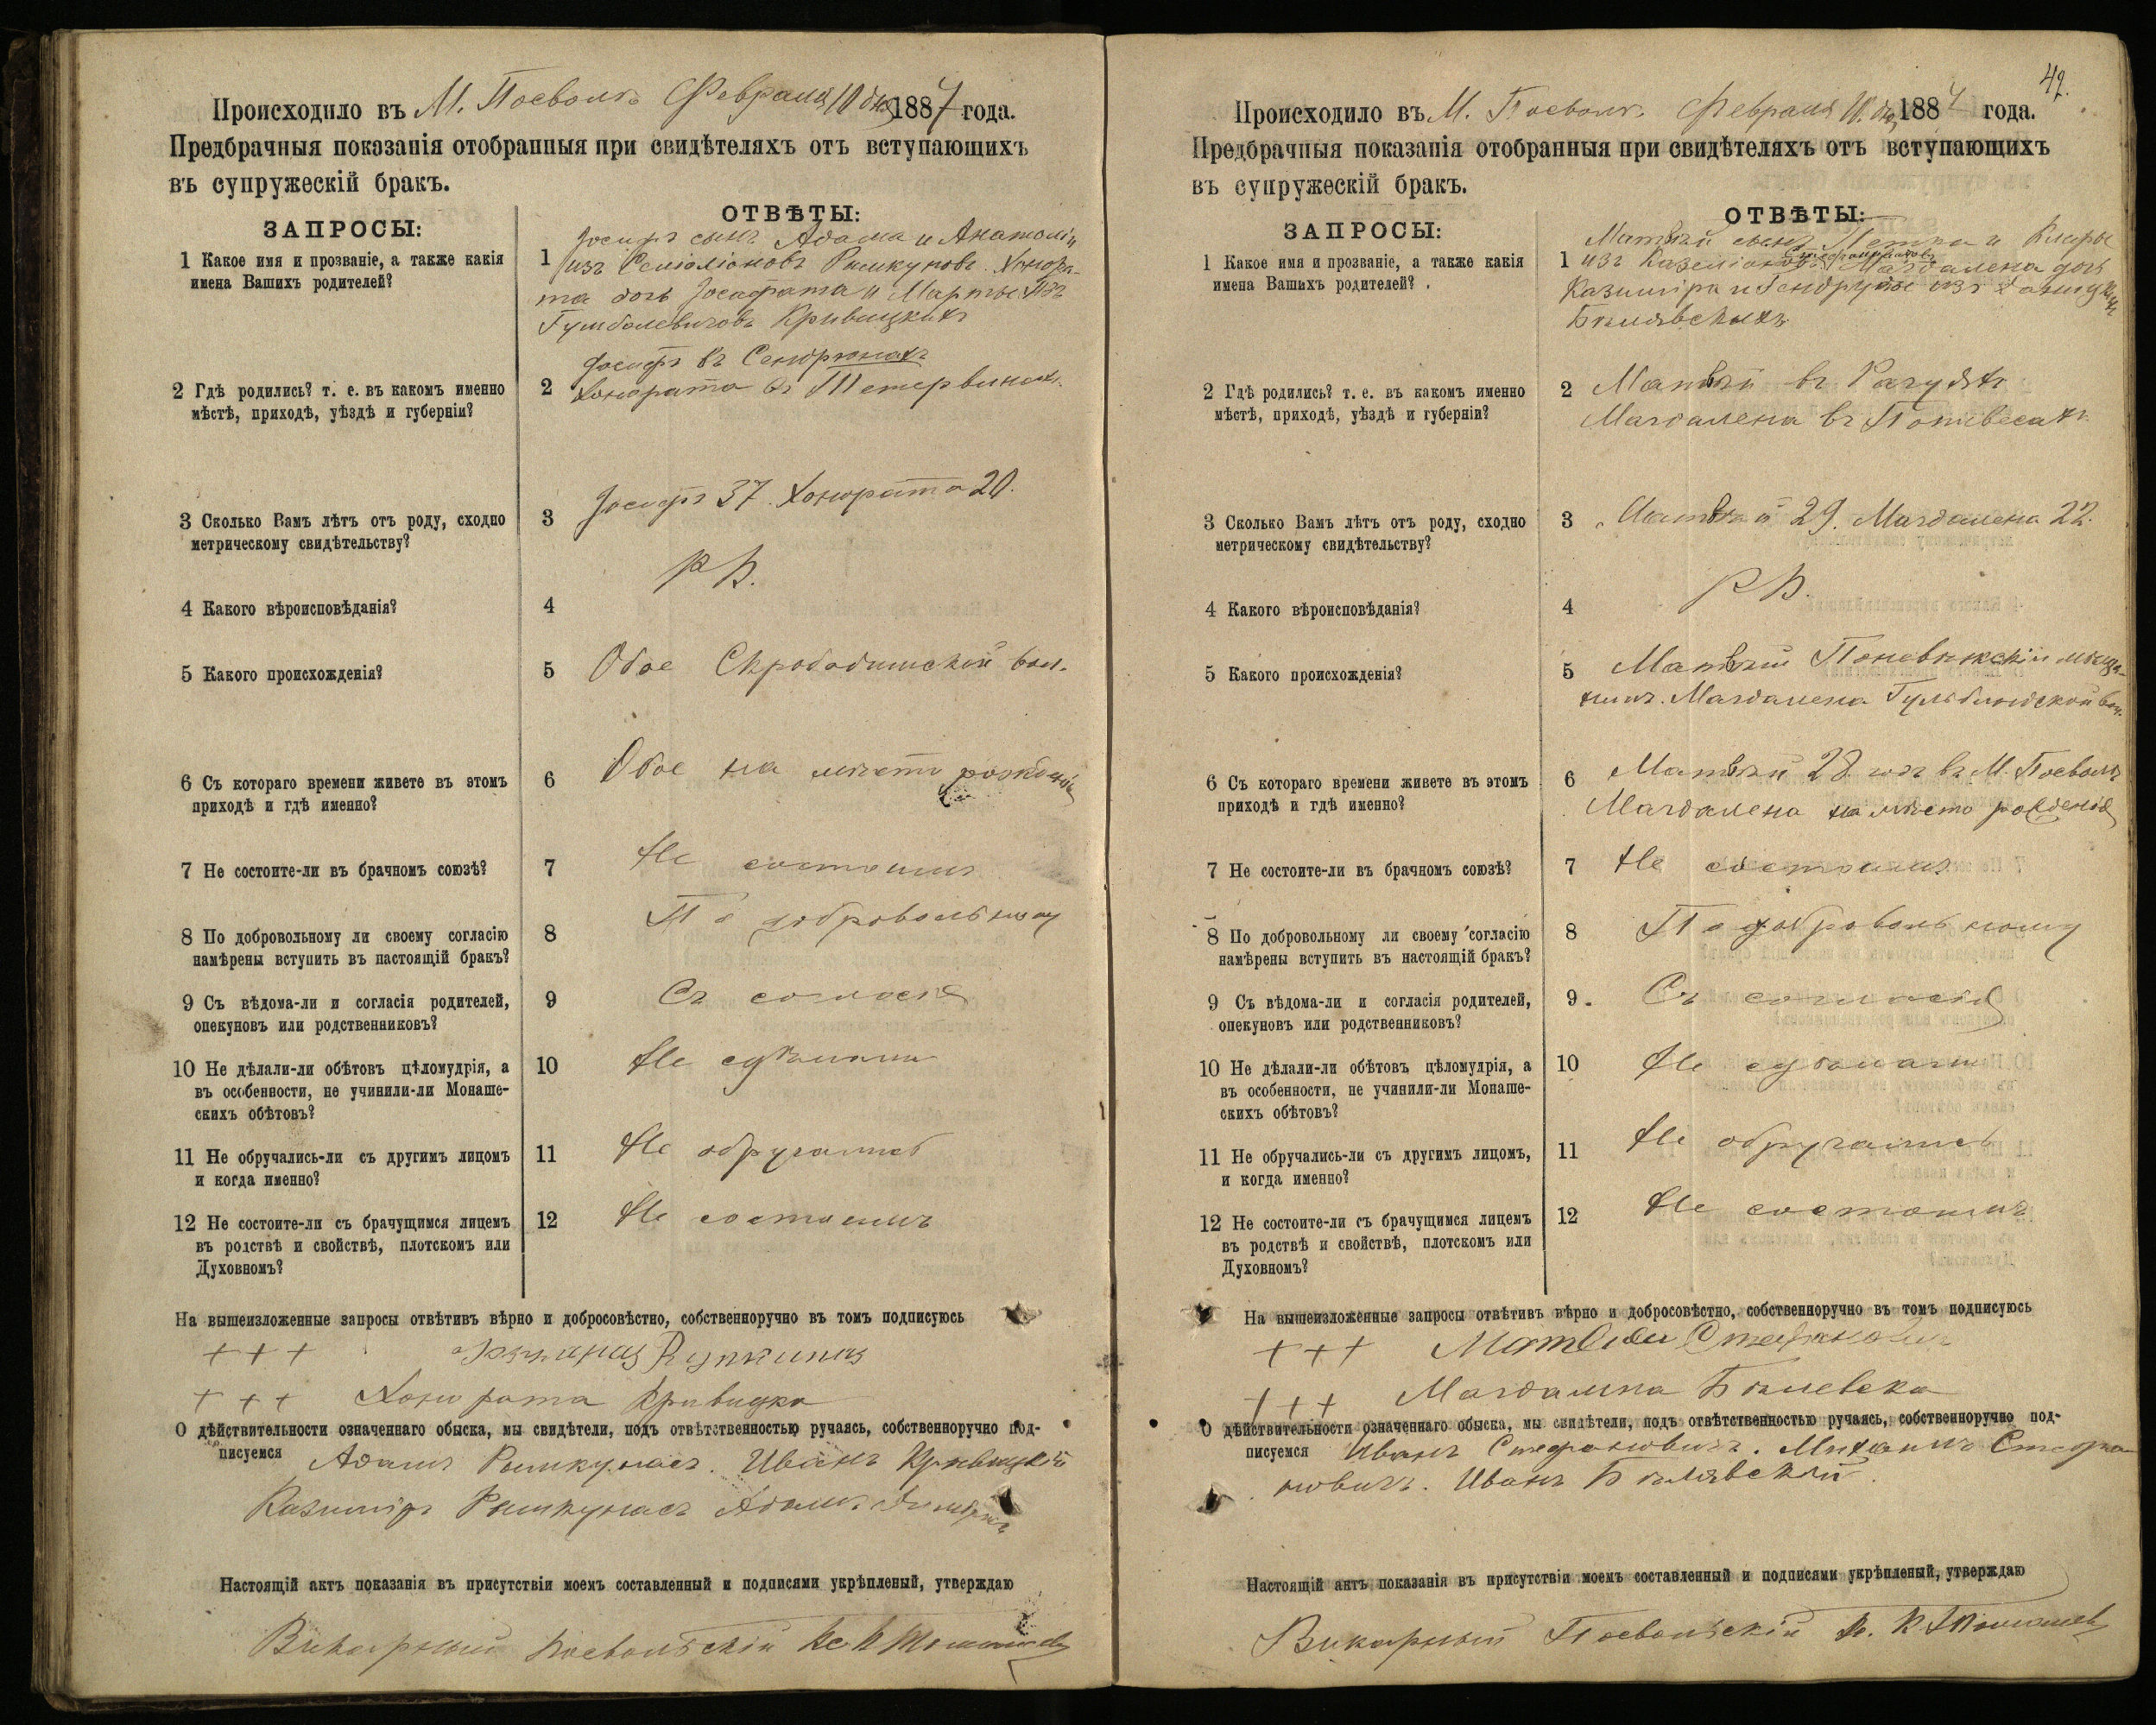 Происходило въ М. Поевольѣ Февраля 10 дня 1887 года.
Предбрачныя показанія отобранныя при свидѣтеляхъ отъ вступающихъ
въ супружескій бракъ.
ЗАПРОСЫ:
ОТВѢТЫ:
1 Какое имя и прозваніе, а также какія
имена Вашихъ родителей?
1 Іосифъ сынъ Адама и Анатоліи
изъ Рымкуновъ. Хонора-
та дочь Іосафата и Марты изъ
Кривицкихъ
2 Гдѣ родились? т. е. въ какомъ именно
мѣстѣ, приходѣ, уѣздѣ и губерніи?
2 Іосифъ въ
Хонората въ Петервинахъ
3 Сколько Вамъ лѣтъ отъ роду, сходно
метрическому свидѣтельству?
3 Іосифъ 37. Хонората 20.
4 Какого вѣроисповѣданія?
4 РК.
5 Какого происхожденія?
5 Обое Скрободишской вол.
6 Съ котораго времени живете въ этомъ
приходѣ и гдѣ именно?
6 Обое на мѣсто рожденія
7 Не состоите-ли въ брачномъ союзѣ?
7 Не состоимъ
8 По добровольному ли своему согласію
намѣрены вступить въ настоящій бракъ?
8 По добровольному
9 Съ вѣдома-ли и согласія родителей,
опекуновъ или родственниковъ?
9 Съ согласія
10 Не дѣлали-ли обѣтовъ цѣломудрія, а
въ особенности, не учинили-ли Монаше-
скихъ обѣтовъ?
10 Не сдѣлали
11 Не обручались-ли съ другимъ лицомъ
и когда именно?
11 Не обручались
12 Не состоите-ли съ брачущимся лицемъ
въ родствѣ и свойствѣ, плотскомъ или
Духовномъ?
12 Не состоимъ
На вышеизложенные запросы отвѣтивъ вѣрно и добросовѣстно, собственноручно въ томъ подписуюсь
+++
+++ Хонората Кривицка
О дѣйствительности означеннаго обыска, мы свидѣтели, подъ отвѣтственностью ручаясь, собственноручно под-
писуемся Адамъ Рымкунасъ. Иванъ Кривицкій
Казиміръ Рымкунасъ Адамъ
Настоящій актъ показанія въ присутствіи моемъ составленный и подписями укрѣпленый, утверждаю
Викарный Поевольскій Кс. К.
42.
Происходило въ М. Поевольѣ. Февраля 10 дня 1887 года.
Предбрачныя показанія отобранныя при свидѣтеляхъ отъ вступающихъ
въ супружескій бракъ.
ЗАПРОСЫ:
ОТВѢТЫ:
1 Какое имя и прозваніе, а также какія
имена Вашихъ родителей?
1 Матвѣй сынъ Петра и Клары
изъ Магдалена дочь
Казиміра и изъ
Бѣлявскихъ
2 Гдѣ родились? т. е. въ какомъ именно
мѣстѣ, приходѣ, уѣздѣ и губерніи?
2 Матвѣй въ
Магдалена въ
3 Сколько Вамъ лѣтъ отъ роду, сходно
метрическому свидѣтельству?
3 Матвѣй 29. Магдалена 22.
4 Какого вѣроисповѣданія?
4 РК.
5 Какого происхожденія?
5 Матвѣй Поневѣжскій мѣща-
нинъ. Магдалена Гульбинской вол.
6 Съ котораго времени живете въ этомъ
приходѣ и гдѣ именно?
6 Матвѣй 28 годъ въ М. Поевольѣ
Магдалена на мѣсто рожденія
7 Не состоите-ли въ брачномъ союзѣ?
7 Не состоимъ
8 По добровольному ли своему согласію
намѣрены вступить въ настоящій бракъ?
8 По добровольному
9 Съ вѣдома-ли и согласія родителей,
опекуновъ или родственниковъ?
9. Съ согласія
10 Не дѣлали-ли обѣтовъ цѣломудрія, а
въ особенности, не учинили-ли Монаше-
скихъ обѣтовъ?
10 Не сдѣлали
11 Не обручались-ли съ другимъ лицомъ,
и когда именно?
11 Не обручались
12 Не состоите-ли съ брачущимся лицемъ
въ родствѣ и свойствѣ, плотскомъ или
Духовномъ?
12 Не состоимъ
На вышеизложенные запросы отвѣтивъ вѣрно и добросовѣстно, собственноручно въ томъ подписуюсь
+++ Матвѣй Стефановичъ
+++ Магдалина Бѣлевска
О дѣйствительности означеннаго обыска, мы свидѣтели, подъ отвѣтственностью ручаясь, собственноручно под-
писуемся Иванъ Стефановичъ. Михаилъ Стефа-
новичъ. Иванъ Бѣлявскій.
Настоящій актъ показанія въ присутствіи моемъ составленный и подписями укрѣпленый, утверждаю
Викарный Поевольскій К.